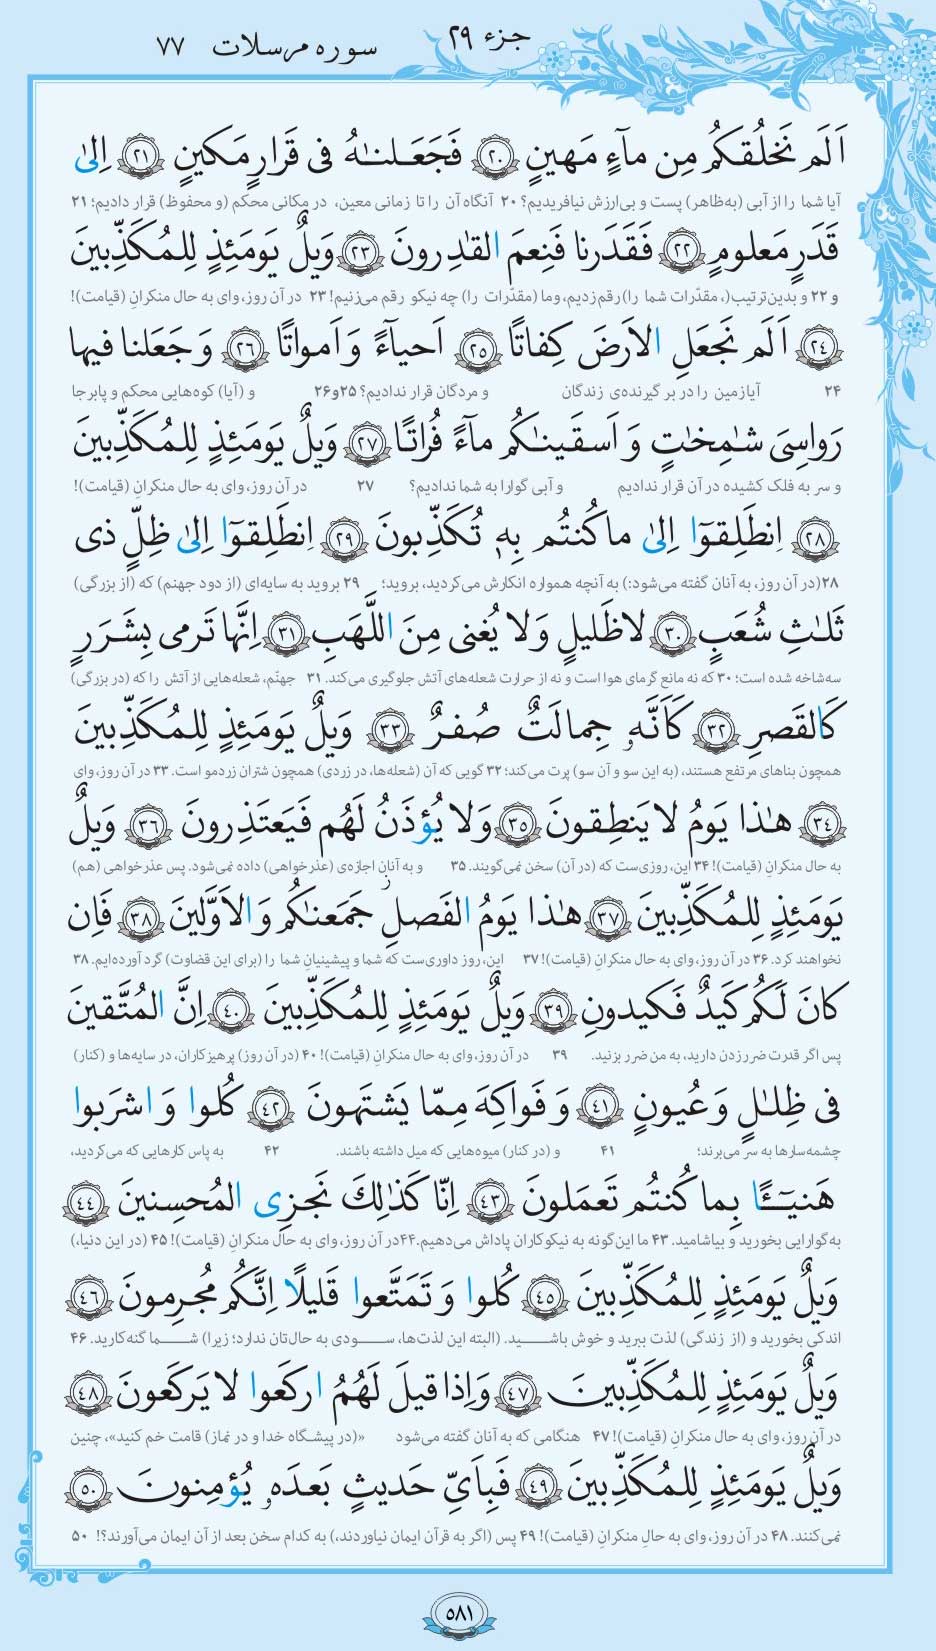 جزء ۲۹
سوره مرسلات ۷۷
اَلَم نَخلُقكُم مِن مآءٍ مَهينٍ ﴿٢٠﴾ فَجَعَلنـٰهُ فى قَرارٍ مَكينٍ ﴿٢١﴾ اِلىٰ
آیا شما را از آبی (به‌ظاهر) پست و بی‌ارزش نیافریدیم؟ ۲۰ آنگاه آن را تا زمانی معین، در مکانی محکم (و محفوظ) قرار دادیم؛ ۲۱
قَدَرٍ مَعلومٍ ﴿٢٢﴾ فَقَدَرنا فَنِعمَ القٰدِرونَ ﴿٢٣﴾ وَيلٌ يَومَئِذٍ لِلمُكَذِّبينَ
و ۲۲ و بدین‌ترتیب(، مقدّرات شما را) رقم زدیم، وما (مقدّرات را) چه نیکو رقم می‌زنیم! ۲۳ در آن روز، وای به حال منکرانِ (قیامت)!
﴿٢٤﴾ اَلَم نَجعَلِ الاَرضَ كِفاتًا ﴿٢٥﴾ اَحيآءً وَ اَمواتًا ﴿٢٦﴾ وَ جَعَلنا فيها
۲۴ آیا زمین را در بر گیرنده‌ی زندگان و مردگان قرار ندادیم؟ ۲۵و۲۶ و (آیا) کوه‌هایی محکم و پابرجا
رَواسِىَ شـٰمِخـٰتٍ وَ اَسقَينـٰكُم مآءً فُراتًا ﴿٢٧﴾ وَيلٌ يَومَئِذٍ لِلمُكَذِّبينَ
و سر به فلک کشیده در آن قرار ندادیم و آبی گوارا به شما ندادیم؟ ۲۷ در آن روز، وای به حال منکرانِ (قیامت)!
﴿٢٨﴾ اِنطَلِقوٓا اِلىٰ ما كُنتُم بِهٖ تُكَذِّبونَ ﴿٢٩﴾ اِنطَلِقوٓا اِلىٰ ظِلٍّ ذى
۲۸(در آن روز، به آنان گفته می‌شود:) به آنچه همواره انکارش می‌کردید، بروید؛ ۲۹ بروید به سایه‌ای (از دود جهنم) که (از بزرگی)
ثَلـٰثِ شُعَبٍ ﴿٣٠﴾ لا ظَليلٍ وَلا يُغنى مِنَ اللَّهَبِ ﴿٣١﴾ اِنَّها تَرمى بِشَرَرٍ
سه‌شاخه شده است؛ ۳۰ که نه مانع گرمای هوا است و نه از حرارت شعله‌های آتش جلوگیری می‌کند. ۳۱ جهنّم، شعله‌هایی از آتش را که (در بزرگی)
كَالقَصرِ ﴿٣٢﴾ كَاَنَّهٗ جِمالَتٌ صُفرٌ ﴿٣٣﴾ وَيلٌ يَومَئِذٍ لِلمُكَذِّبينَ
همچون بناهای مرتفع هستند، (به این سو و آن سو) پرت می‌کند؛ ۳۲ گویی که آن (شعله‌ها، در زردی) همچون شتران زردمو است. ۳۳ در آن روز، وای
﴿٣٤﴾ هـٰذا يَومُ لا يَنطِقونَ ﴿٣٥﴾ وَلا يُؤذَنُ لَهُم فَيَعتَذِرونَ ﴿٣٦﴾ وَيلٌ
به حال منکرانِ (قیامت)! ۳۴ این، روزی‌ست که (در آن) سخن نمی‌گویند. ۳۵ و به آنان اجازه‌ی (عذرخواهی) داده نمی‌شود. پس عذرخواهی (هم)
يَومَئِذٍ لِلمُكَذِّبينَ ﴿٣٧﴾ هـٰذا يَومُ الفَصلِ جَمَعنـٰكُم وَ الاَوَّلينَ ﴿٣٨﴾ فَاِن
نخواهند کرد. ۳۶ در آن روز، وای به حال منکرانِ (قیامت)! ۳۷ این، روز داوری‌ست که شما و پیشینیانِ شما را (برای این قضاوت) گرد آورده‌ایم. ۳۸
كانَ لَكُم كَيدٌ فَكيدونِ ﴿٣٩﴾ وَيلٌ يَومَئِذٍ لِلمُكَذِّبينَ ﴿٤٠﴾ اِنَّ المُتَّقينَ
پس اگر قدرت ضررزدن دارید، به من ضرر بزنید. ۳۹ در آن روز، وای به حال منکرانِ (قیامت)! ۴۰ (در آن روز) پرهیزکاران، در سایه‌ها و (کنار)
فى ظِلـٰلٍ وَ عُيونٍ ﴿٤١﴾ وَ فَواكِهَ مِمّا يَشتَهونَ ﴿٤٢﴾ كُلوا وَ اشرَبوا
چشمه‌سارها به سر می‌برند؛ ۴۱ و (در کنار) میوه‌هایی که میل داشته باشند. ۴۲ به پاس کارهایی که می‌کردید،
هَنيٓـًٔا بِما كُنتُم تَعمَلونَ ﴿٤٣﴾ اِنّا كَذٰلِكَ نَجزِى المُحسِنينَ ﴿٤٤﴾
به‌گوارایی بخورید و بیاشامید. ۴۳ ما این‌گونه به نیکوکاران پاداش می‌دهیم.۴۴در آن روز، وای به حال منکرانِ (قیامت)! ۴۵ (در این دنیا،)
وَيلٌ يَومَئِذٍ لِلمُكَذِّبينَ ﴿٤٥﴾ كُلوا وَ تَمَتَّعوا قَليلًا اِنَّكُم مُجرِمونَ ﴿٤٦﴾
اندکی بخورید و (از زندگی) لذت ببرید و خوش باشید. (البته این لذت‌ها، سودی به حال‌تان ندارد؛ زیرا) شما گنه‌کارید. ۴۶
وَيلٌ يَومَئِذٍ لِلمُكَذِّبينَ ﴿٤٧﴾ وَ اِذا قيلَ لَهُمُ اركَعوا لا يَركَعونَ ﴿٤٨﴾
در آن روز، وای به حال منکرانِ (قیامت)! ۴۷ هنگامی که به آنان گفته می‌شود «(در پیشگاه خدا و در نماز) قامت خم کنید»، چنین
وَيلٌ يَومَئِذٍ لِلمُكَذِّبينَ ﴿٤٩﴾ فَبِاَىِّ حَديثٍ بَعدَهٗ يُؤمِنونَ ﴿٥٠﴾
نمی‌کنند. ۴۸ در آن روز، وای به حالِ منکرانِ (قیامت)! ۴۹ پس (اگر به قرآن ایمان نیاوردند،) به کدام سخن بعد از آن ایمان می‌آورند؟! ۵۰
۵۸۱